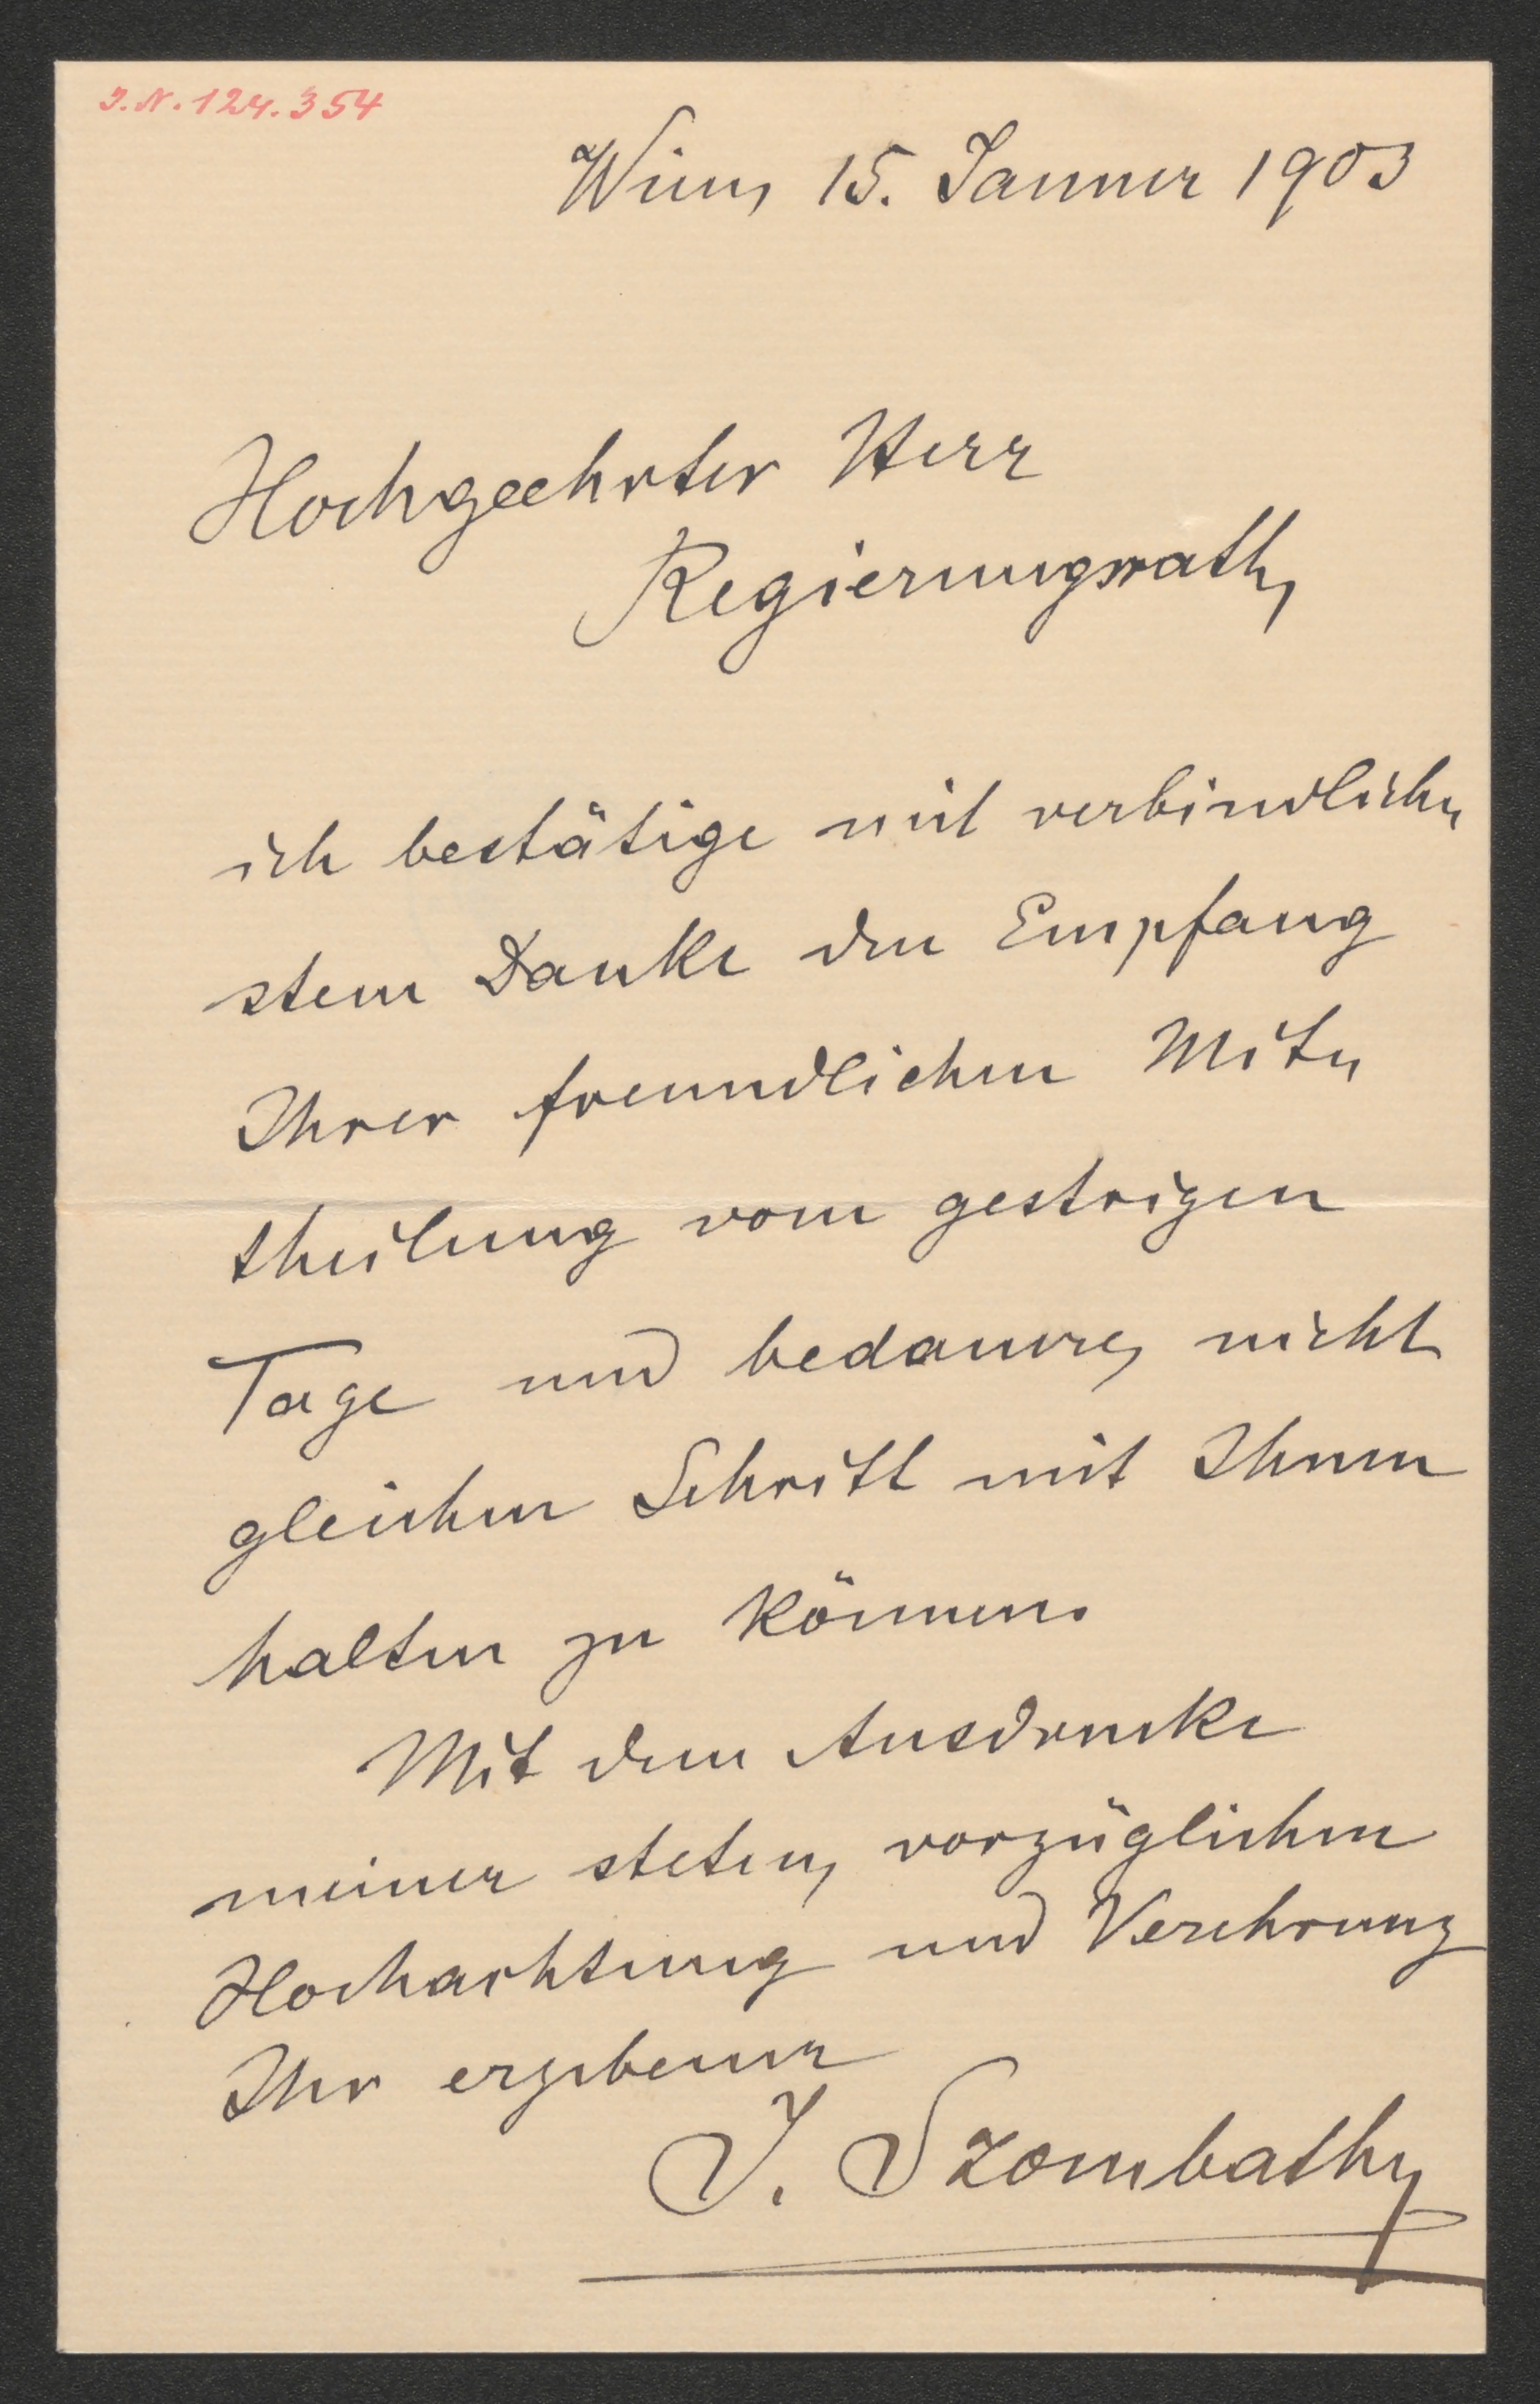 J.N. 124.354
Wien, 15. Januar 1903
Hochgeehrter Herr
Regierungsrath,
ich bestätige mit verbindlich„
stem Danke den Empfang
Ihrer freundlichen Mit„
theilung vom gestrigen
Tage und bedaure, nicht
gleichen Schritt mit Ihnen
halten zu können.
Mit dem Ausdrucke
meiner steten, vorzüglichen
Hochachtung und Verehrung
Ihr ergebener
J. Szombathy